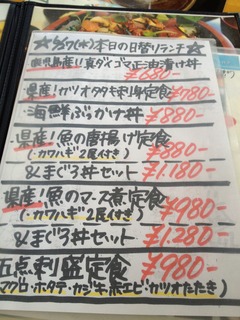 ☆5/27(水)本日の日替りランチ☆
鹿児島産!真ダイゴマ正油漬け丼
¥680-
県産!カツオタタキ刺身定食¥780-
海鮮ぶっかけ丼 ¥880-
県産!魚の唐揚げ定食
(・カワハギ2尾付き) ¥880-
&まぐろ丼セット ¥1,180-
県産!魚のマース煮定食
(・カワハギ2尾付き) ¥980-
&まぐろ丼セット ¥1,280-
五点刺盛定食 ¥980-
マグロ・ホタテ・カジキ・赤エビ・カツオたたき)